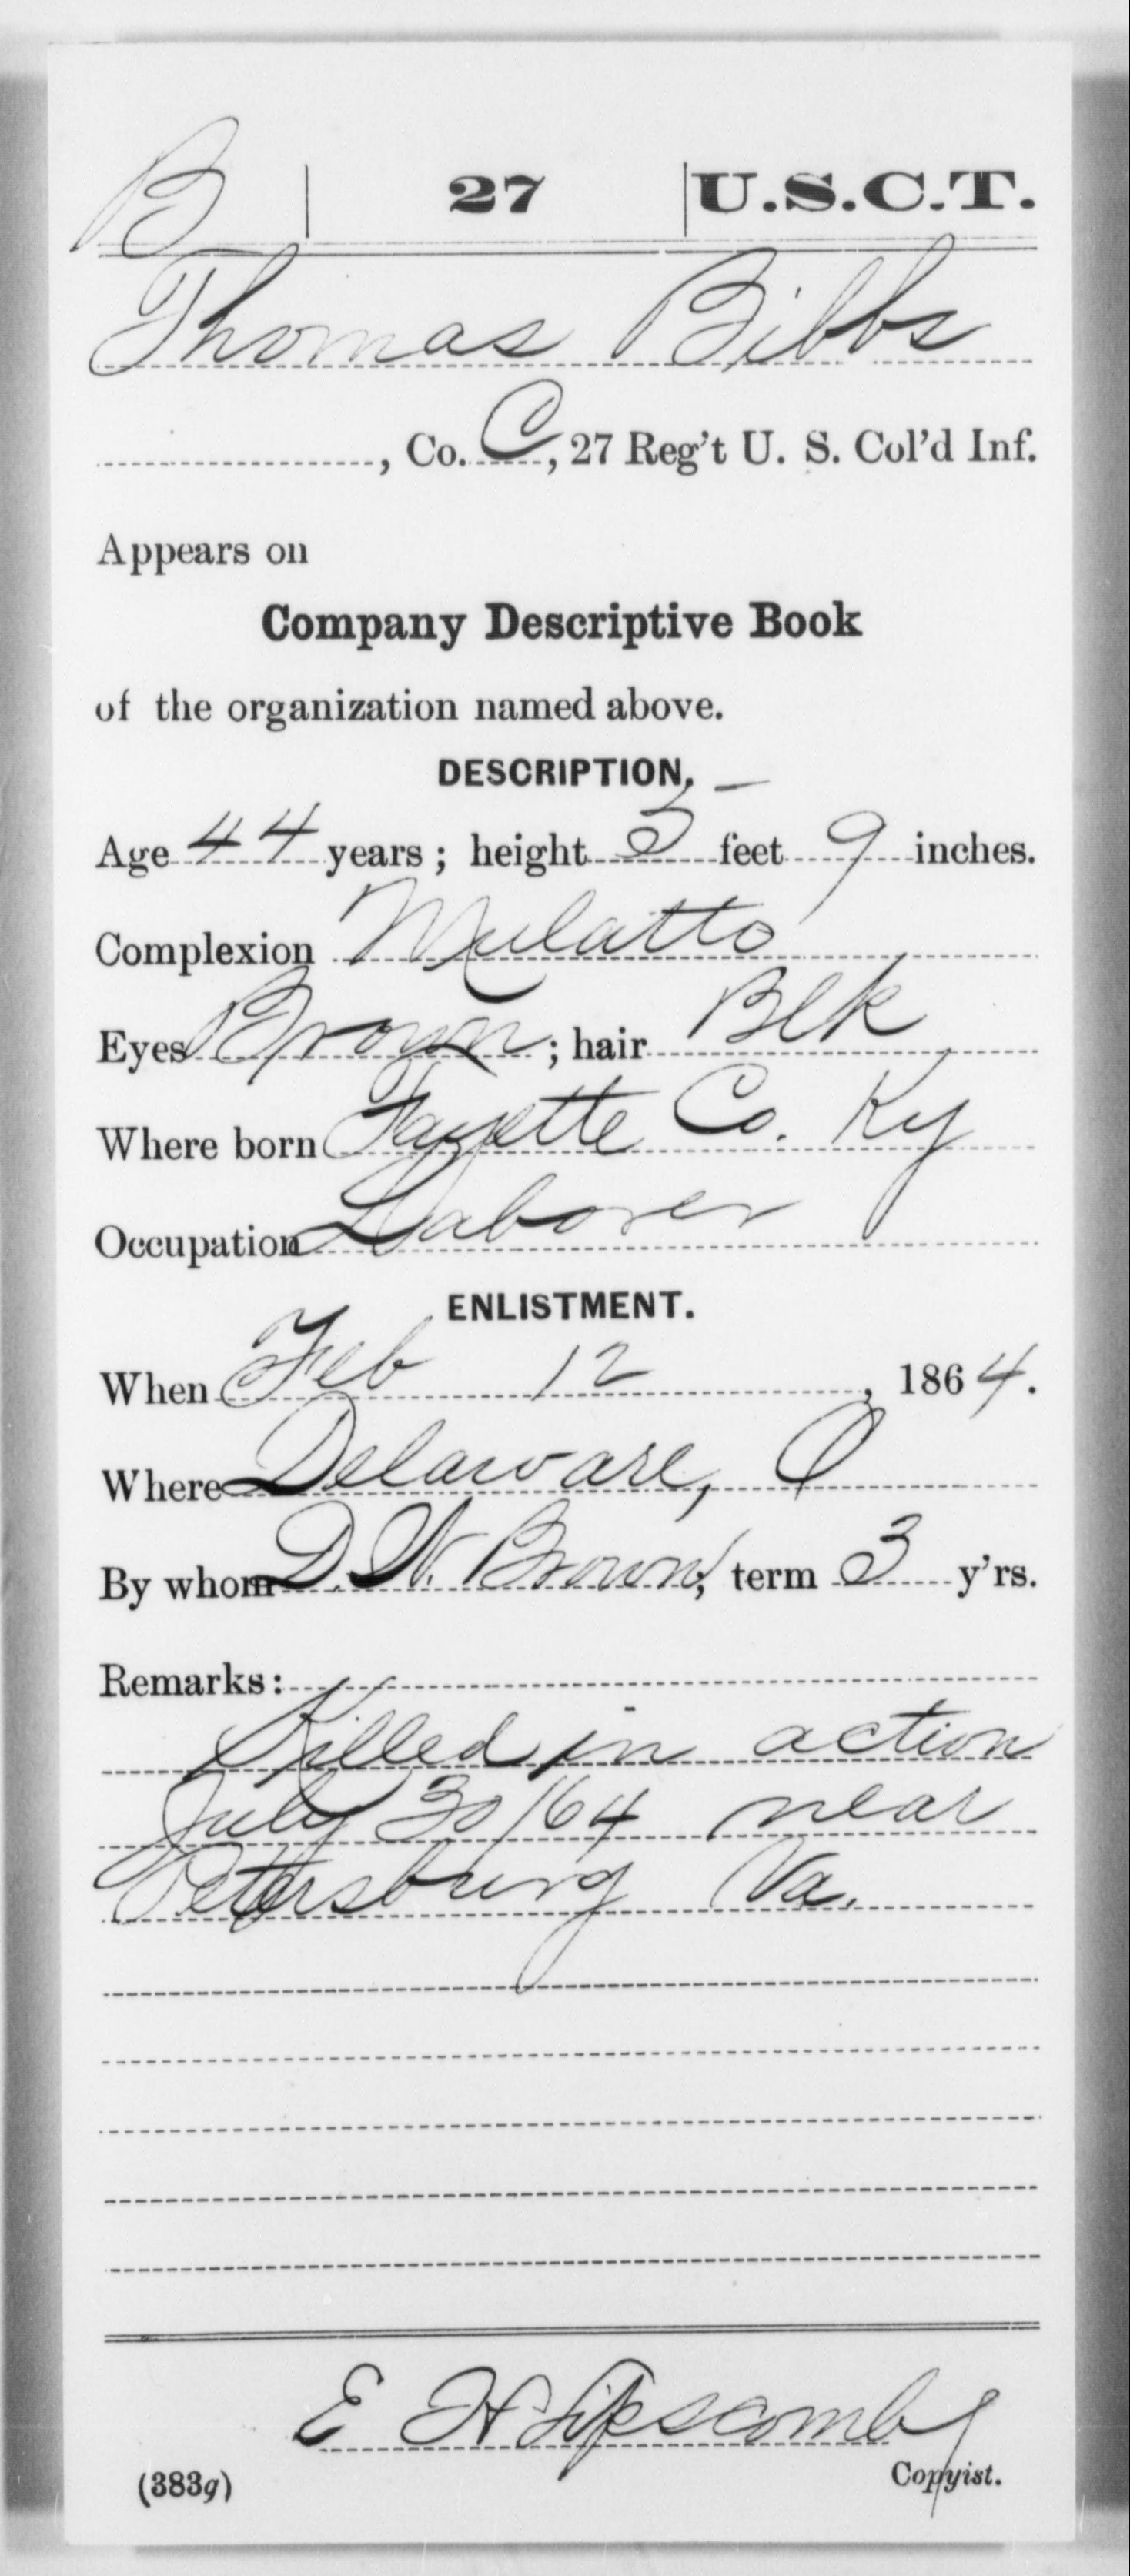 B | 27 | U.S.C.T.
Thomas Bibbs
, Co. C, 27 Reg't U. S. Col'd Inf.
Appears on
Company Descriptive Book
of the organization named above.
DESCRIPTION.
Age 44 years; height 5 feet 9 inches.
Complexion Mulatto
Eyes Brown; hair Blk
Where born Fayette Co. Ky
Occupation Laborer
ENLISTMENT.
When Feb 12, 1864.
Where Delaware, O
By whom D. W. Brown; term 3 y'rs.
Remarks:
Killed in action
July 30/64 near
Petersburg Va.
E H Lipscomb
(383g) Copyist.